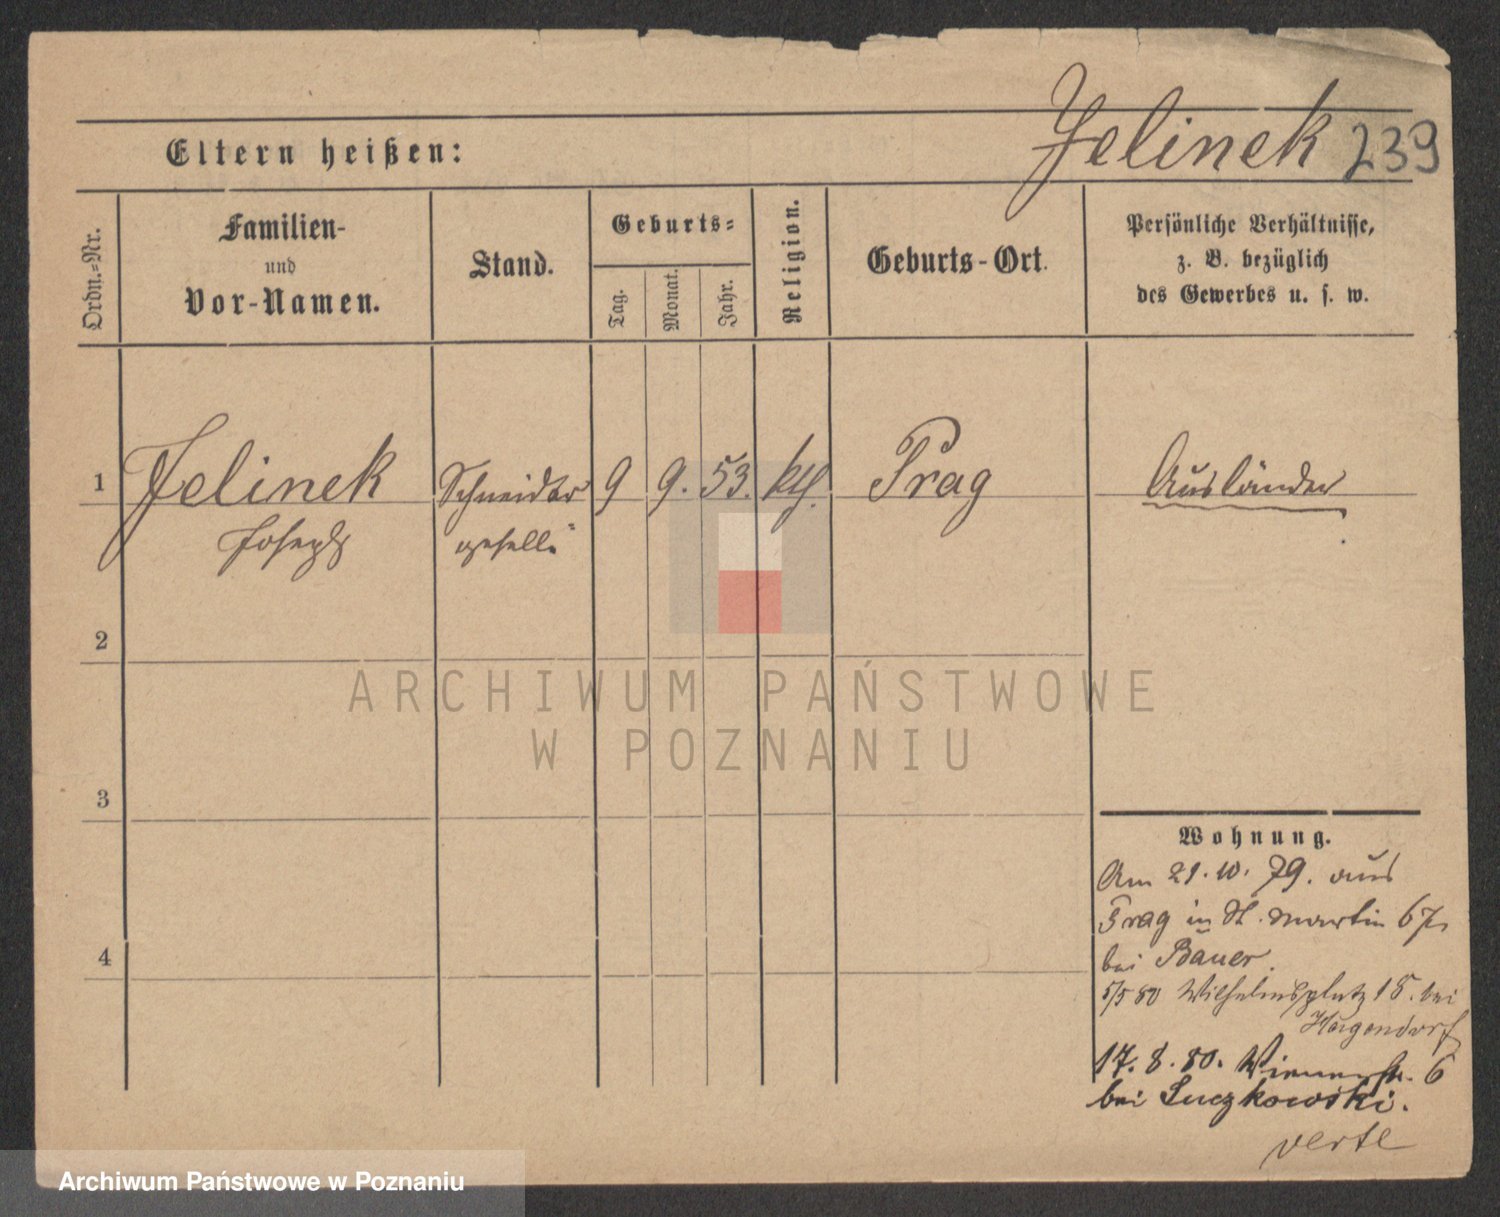 Jelinek 239
Eltern heißen:
Ordn.=Nr.
Familien-
und
Vor-Namen.
Stand.
Geburts=
Tag.
Monat.
Jahr.
Religion.
Geburts-Ort.
Persönliche Verhältnisse,
z. B. bezüglich
des Gewerbes u. s. w.
1 Jelinek Schneider 9 9. 53. kth. Prag Ausländer
Joseph gesell.
2
3
4
ARCHIWUM PAŃSTWOWE
W POZNANIU
Wohnung.
Am 21.10.79. aus
Prag in St. Martin 67,
bei Bauer.
5/5 80 Wilhelmsplatz 18. bei
Hagendorf
17.8.80. Wienerstr. 6
bei Luczkowski.
verte
Archiwum Państwowe w Poznaniu